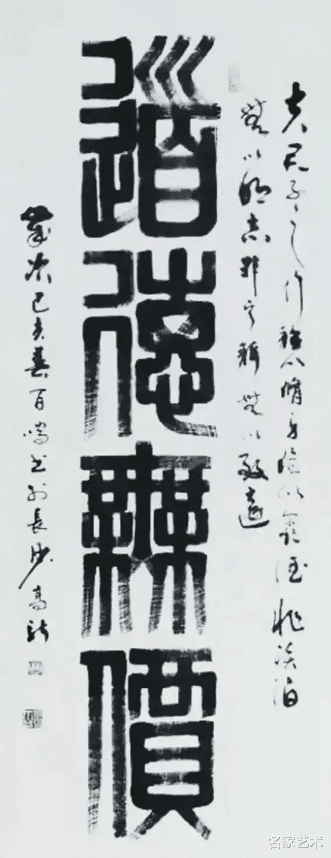 夫君子之行靜以脩身儉以養德非淡泊
無以明志非寧靜無以致遠
道德無價
歲次己亥春百鳴書於長沙
名家艺术